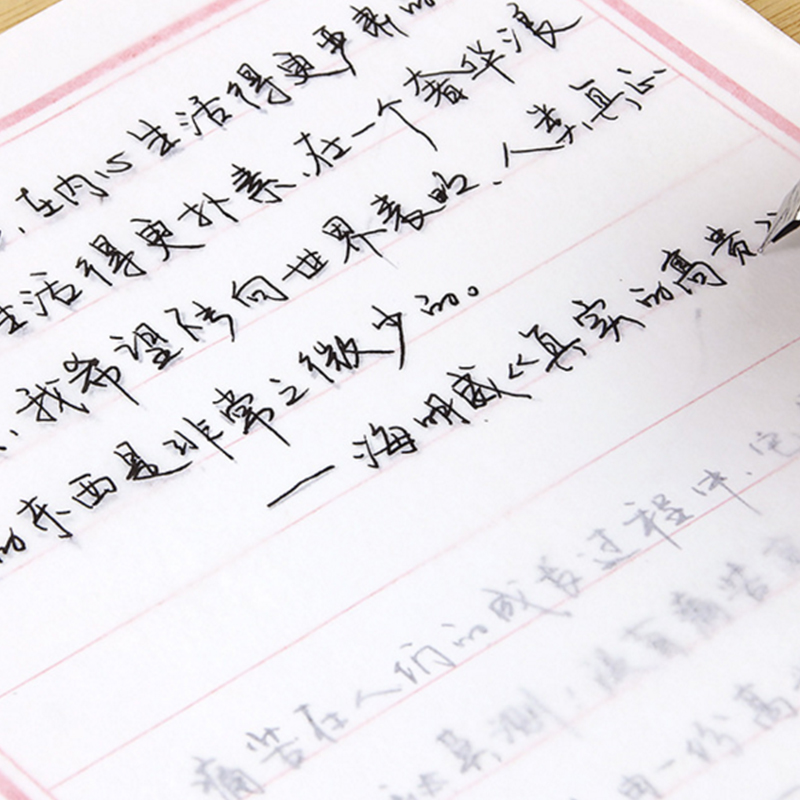 ，在内心生活得更严肃的
生活得更朴素，在一个奢华浪
，我希望能向世界表明，人类真正
的东西是非常之微少的。
——海明威《真实的高贵》
痛苦在人们的成长过程中，它
莫测；没有痛苦
由一份高